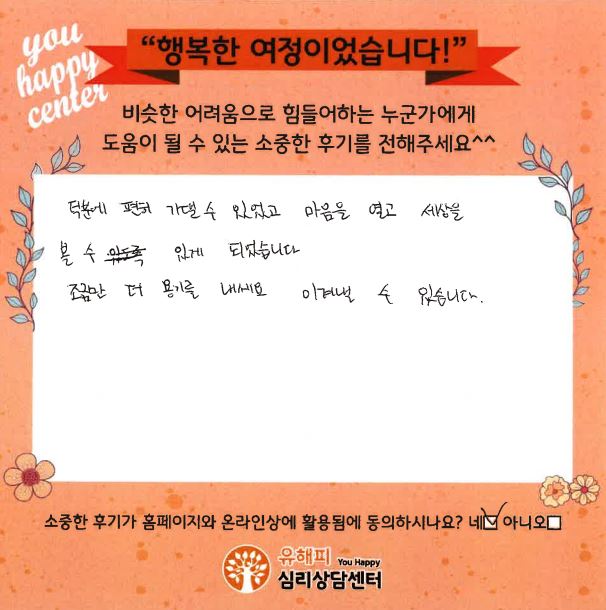 you
happy
center
“행복한 여정이었습니다!”
비슷한 어려움으로 힘들어하는 누군가에게
도움이 될 수 있는 소중한 후기를 전해주세요^^
덕분에 편히 기댈 수 있었고 마음을 열고 세상을
볼 수 있게 되었습니다
조금만 더 용기를 내세요 이겨낼 수 있습니다.
소중한 후기가 홈페이지와 온라인상에 활용됨에 동의하시나요? 네☑ 아니오☐
유해피 You Happy
심리상담센터